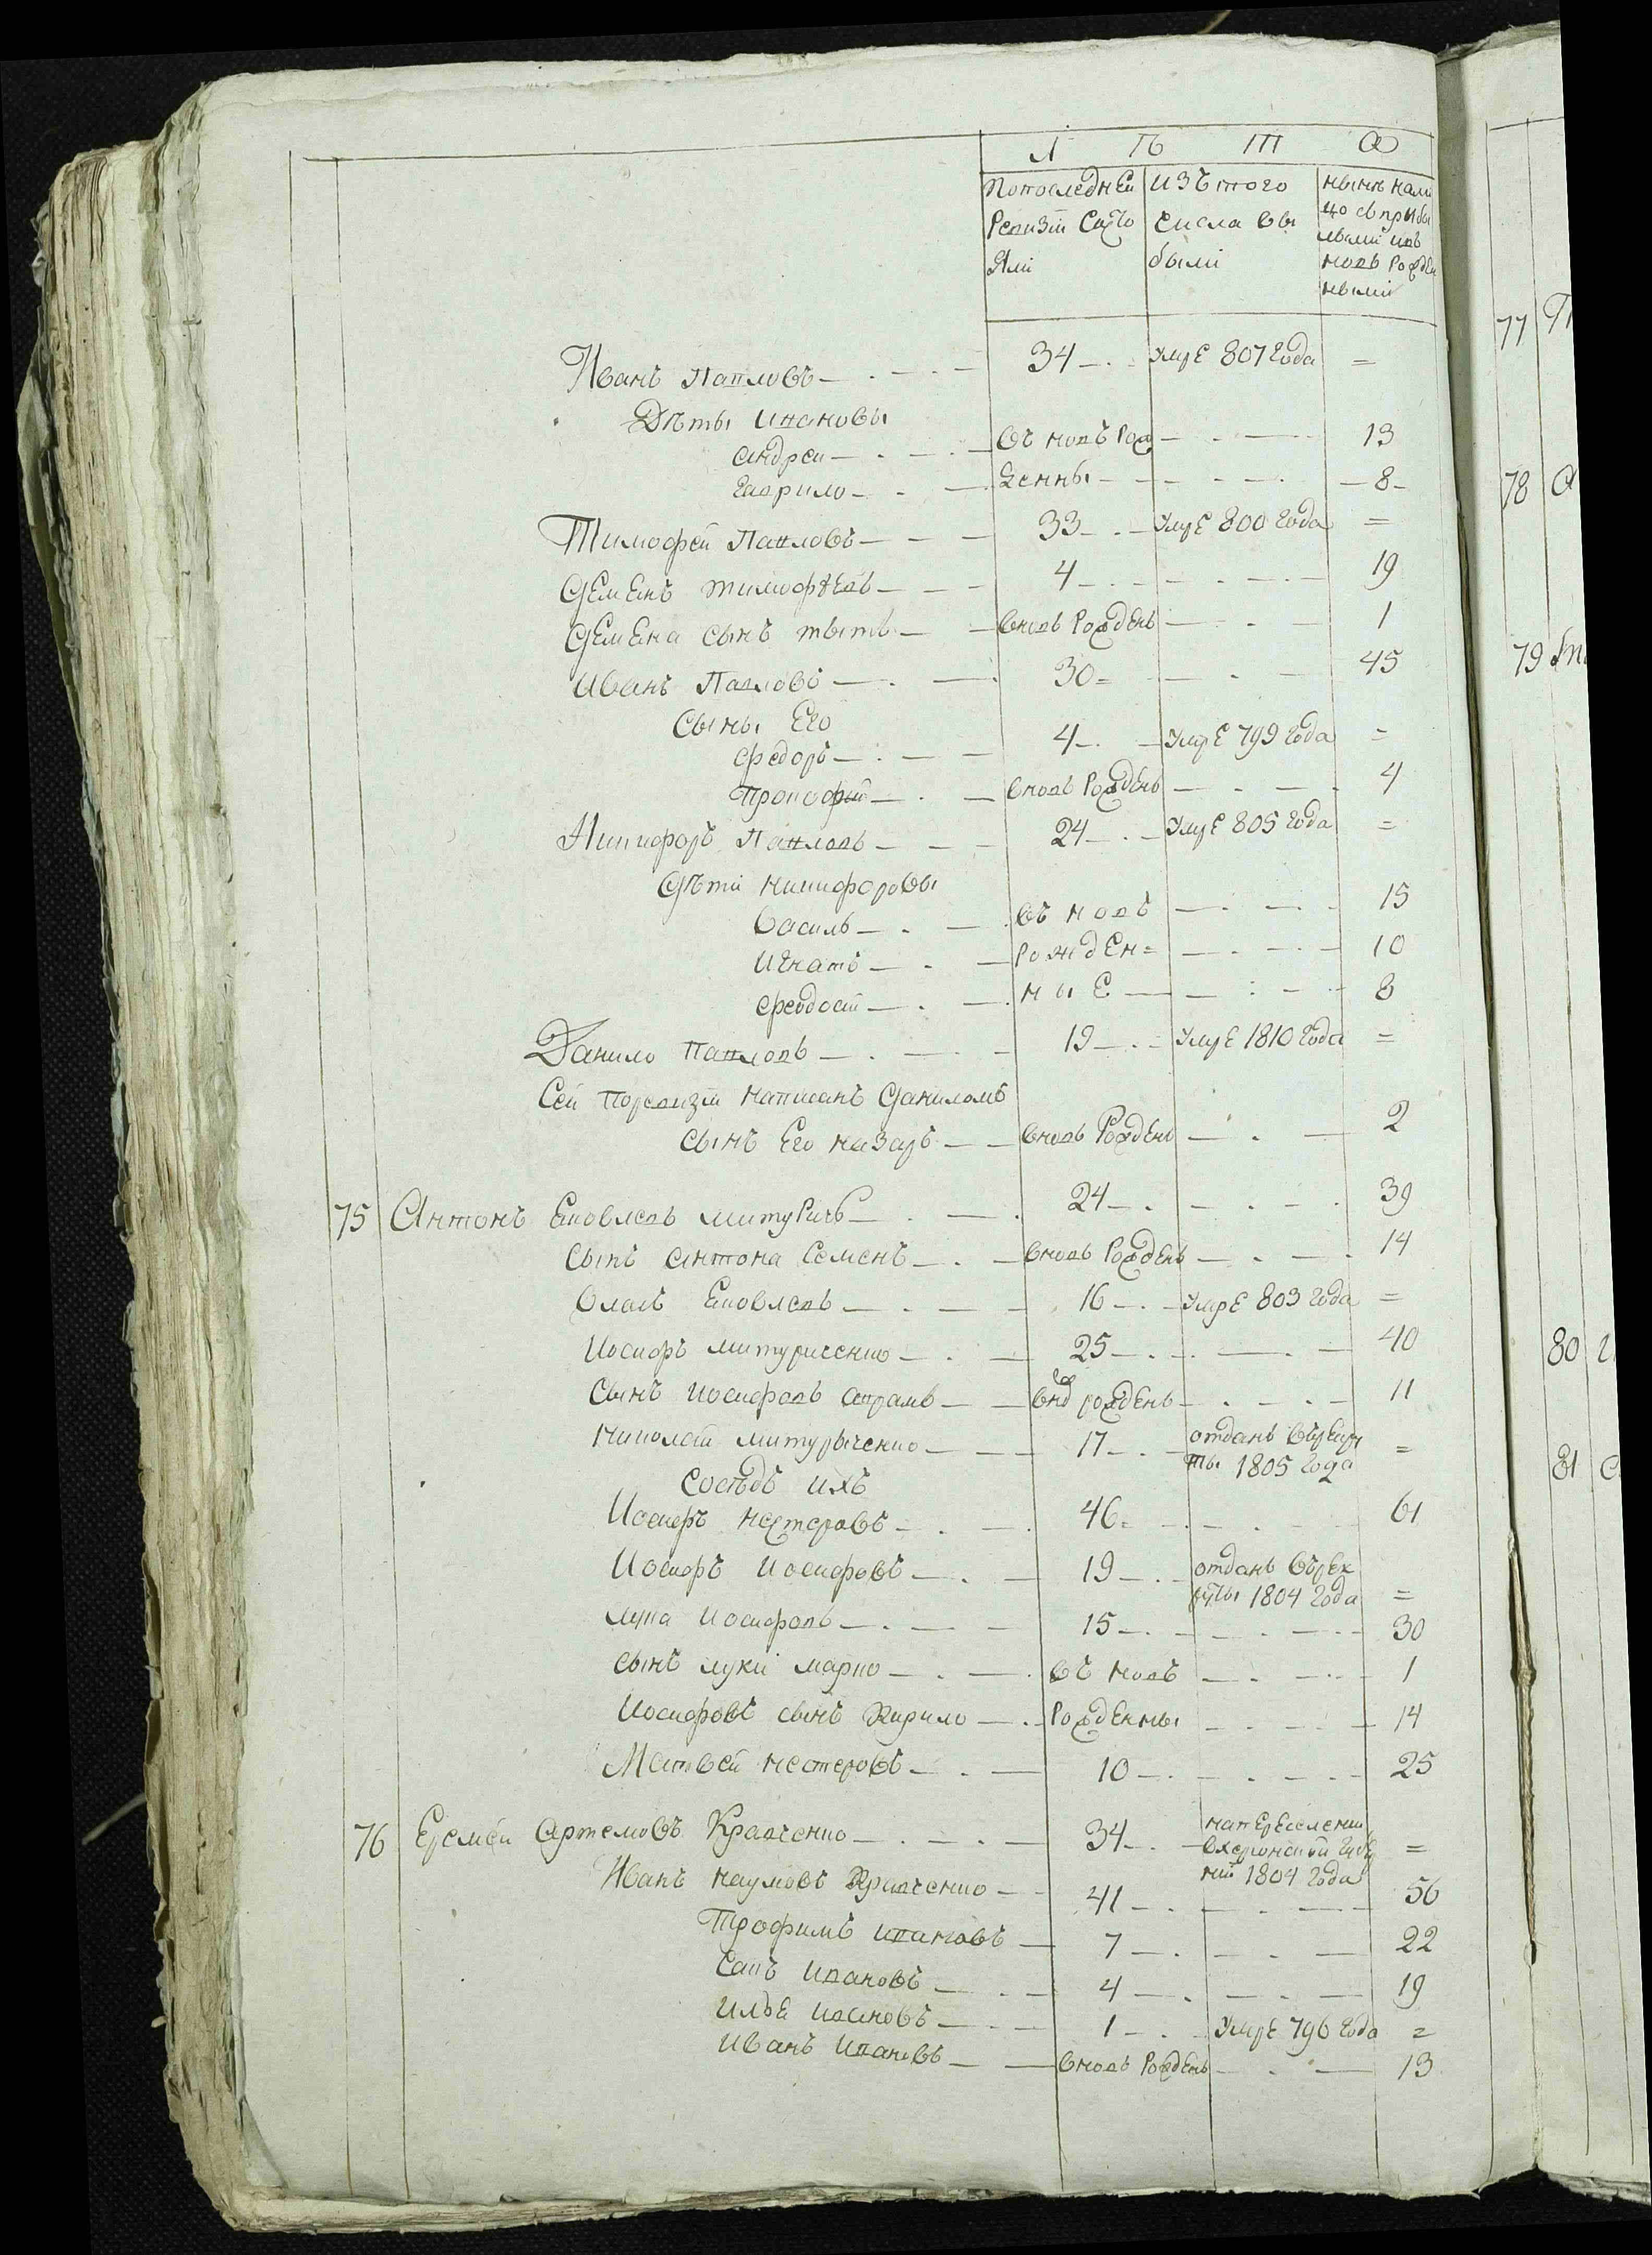 Л Ѣ Т А
Попоследней изъ того нынѣ нали
Ревизіи Состо числа вы цо съ прибы
Яли были лыми и въ
новь Рожден
ными
Иванъ Павловъ 34 умре 807 Года =
Дѣты Ивановы
Андреи въ новь Рож 13
Гаврило денны 8
Тимофеи Павловъ 33 умре 800 Года =
Семенъ тимофѣевъ 4 19
Семена сынъ титъ вновь Рожденъ 1
Иванъ Павловъ 30 45
Сыны Его
Федоръ 4 умре 799 Года =
Прокофій вновь Рожденъ 4
Никифоръ Павловъ 24 умре 805 Года =
Дѣти никифоровы
Василь въ новъ 15
Игнатъ рожден= 10
Феодосій ныЕ 8
Данило Павловъ 19 умре 1810 Года =
Сей Поревизіи написанъ Даниломъ
сынъ Его назаръ вновь Рожденъ 2
75 Антонъ Яковлевъ митуричъ 24 39
Сынъ Антона Семенъ вновь Рожденъ 14
Власъ Яковлевъ 16 умре 803 Года =
Иосифъ митуриченко 25 40
Сынъ иосифовъ Аврамъ внов рожденъ 11
Николай митурыченко 17 отданъ въ рекру
ты 1805 Года =
Сосѣдъ ихъ
Иосифъ нестеровъ 46 61
Иосифъ Иосифовъ 19 отданъ въ рек
руты 1804 Года =
лука Иосифовъ 15 30
сынъ луки марко въ новъ 1
Иосифовъ сынъ Кирило Рожденны 14
Матвеи нестеровъ 10 25
76 Еремеи Артемовъ Кравченко 34 на переселении
в херсонской губер
нии 1804 Года =
Иванъ наумовъ Кравченко 41 56
Трофимъ ивановъ 7 22
Савъ ивановъ 4 19
Илья ивановъ 1 умре 796 Года =
Иванъ Ивановъ вновь Рожденъ 13
77
78
79
80
81